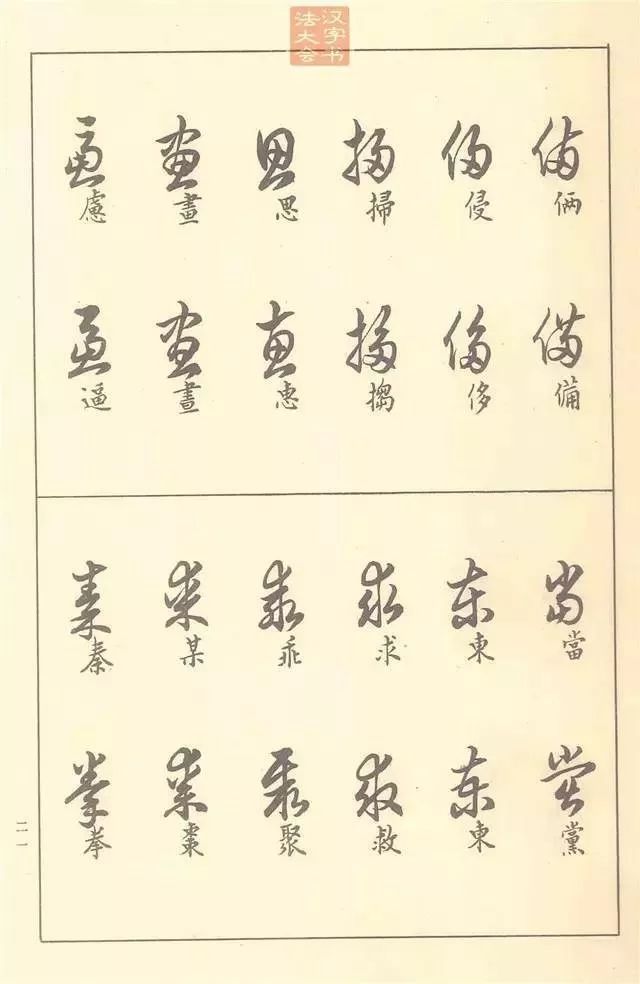 汉字书
法大会
倆 備
侵 侈
掃 搊
思 惠
畫 晝
慮 逼
當 黨
東 柬
求 救
乖 聚
某 棗
秦 拳
二一